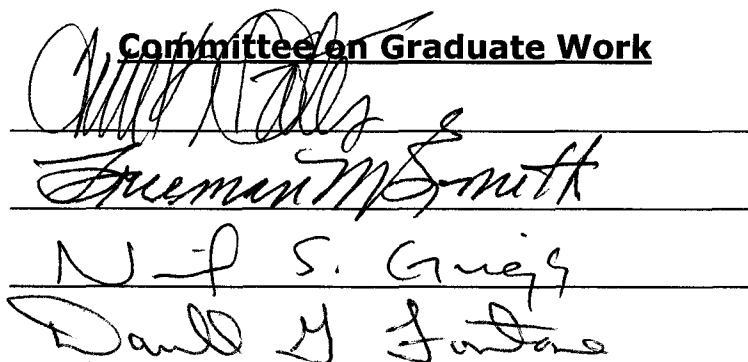 Committee on Graduate Work
Freeman M Smith
Neil S. Grigg
Darrell G Fontane